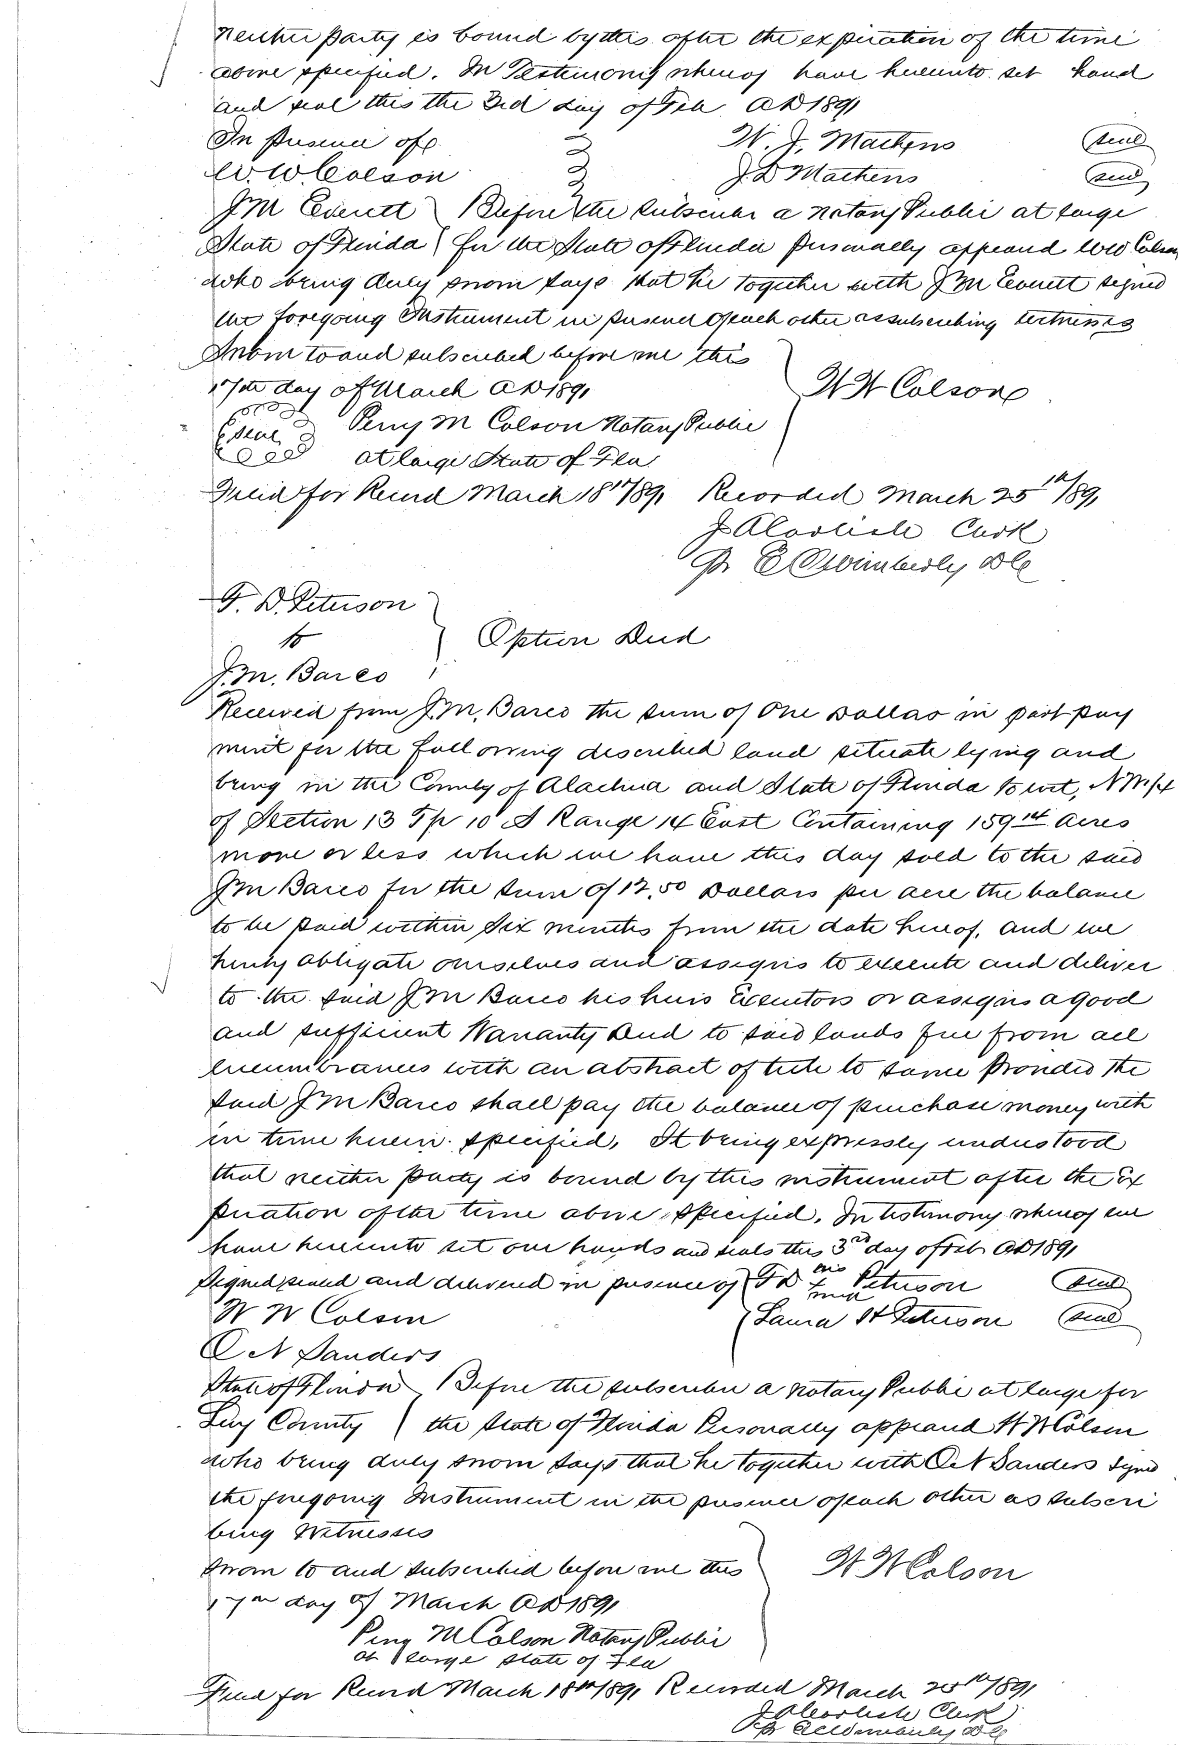 neither party is bound by this after the expiration of the time
above specified. In Testimony whereof have hereunto set hand
and seal this the 3rd day of Feb AD 1891
In presence of W. J. Mathens seal
W. W. Colson J D Mathens seal
J M Everett Before the subscriber a Notary Public at large
State of Florida for the State of Florida personally appeared WW Colson
who being duly sworn says that he together with J M Everett signed
the foregoing Instrument in presence of each other as subscribing witnesses
Sworn to and subscribed before me this
17th day of March AD 1891 W W Colson
seal Perry M Colson Notary Public
at large State of Fla
Filed for Record March 18th/891 Recorded March 25th/891
J A Carlisle Clerk
Pr E C Wimberly DC
F. D. Peterson
to Option Deed
J. M. Barco
Received from J. M. Barco the sum of One Dollar in part pay
ment for the following described land situate lying and
being in the County of Alachua and State of Florida to wit, NW 1/4
of Section 13 Tp 10 S Range 14 East Containing 159 14 acres
more or less which we have this day sold to the said
J M Barco for the sum of 12.50 Dollars per acre the balance
to be paid within six months from the date hereof, and we
hereby obligate ourselves and assigns to execute and deliver
to the said J M Barco his heirs Executors or assigns a good
and sufficient Warranty Deed to said lands free from all
encumbrances with an abstract of title to same Provided the
said J M Barco shall pay the balance of purchase money with
in time herein specified. It being expressly understood
that neither party is bound by this instrument after the Ex
piration of the time above specified. In testimony whereof we
have hereunto set our hands and seals this 3rd day of Feb AD 1891
Signed sealed and delivered in presence of F D his x mark Peterson seal
W W Colson Laura H Peterson seal
O N Sanders
State of Florida Before the subscriber a Notary Public at large for
Levy County the State of Florida Personally appeared W W Colson
who being duly sworn says that he together with O N Sanders signed
the foregoing Instrument in the presence of each other as subscri
bing Witnesses
Sworn to and subscribed before me this W W Colson
17th day of March AD 1891
Perry M Colson Notary Public
at large State of Fla
Filed for Record March 18th/891 Recorded March 25th/891
J A Carlisle Clerk
Pr E C Wimberly DC